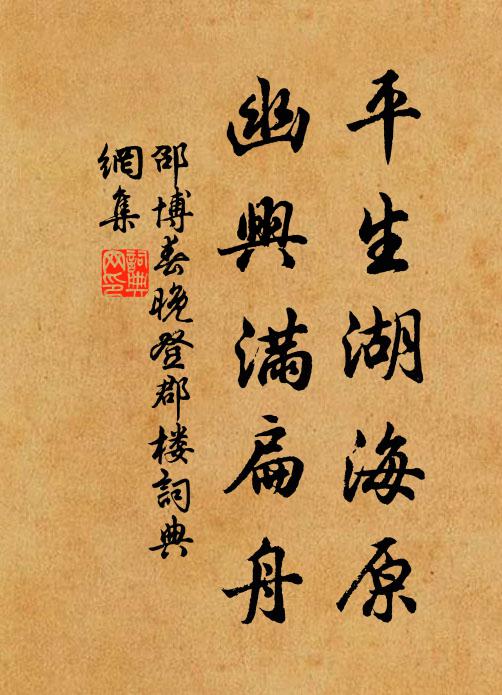 平生湖海原
幽興满扁舟
邵博春晚登郡楼詞典
網集
詞典
网印